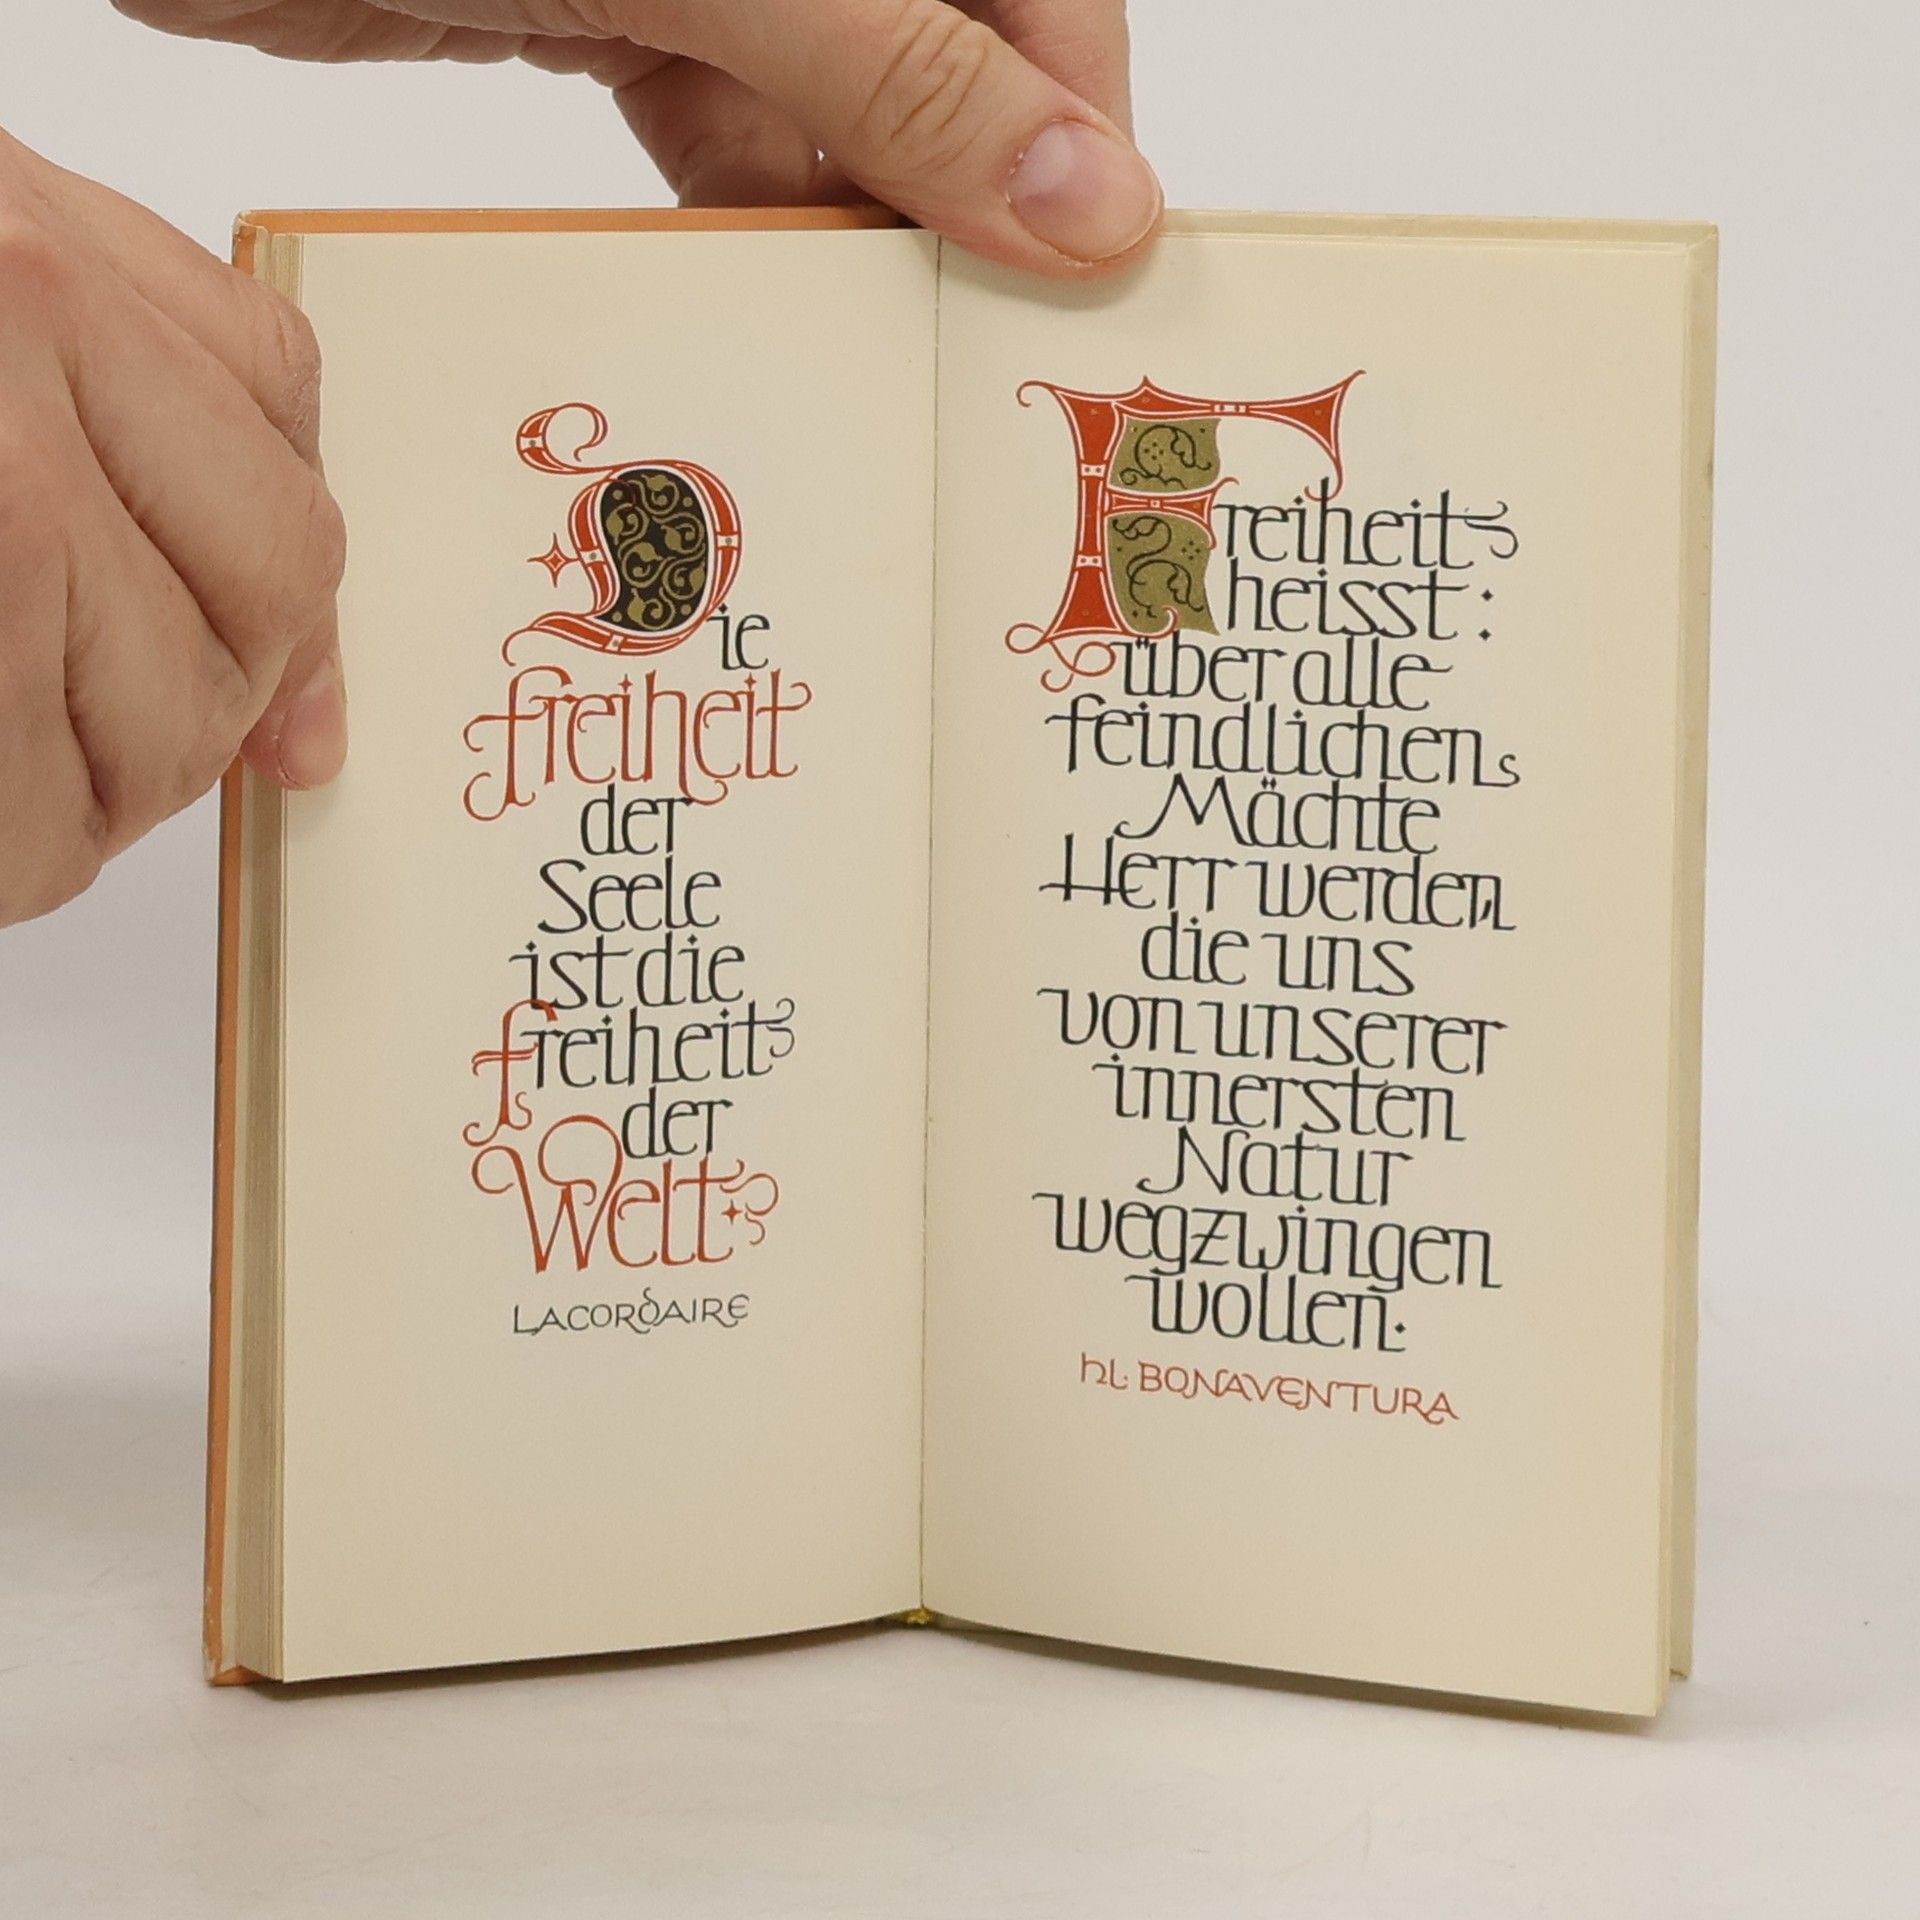 Die
Freiheit
der
Seele
ist die
Freiheit
der
Welt
LACORDAIRE
Freiheit
heisst:
über alle
feindlichen
Mächte
Herr werden,
die uns
von unserer
innersten
Natur
wegzwingen
wollen.
HL. BONAVENTURA